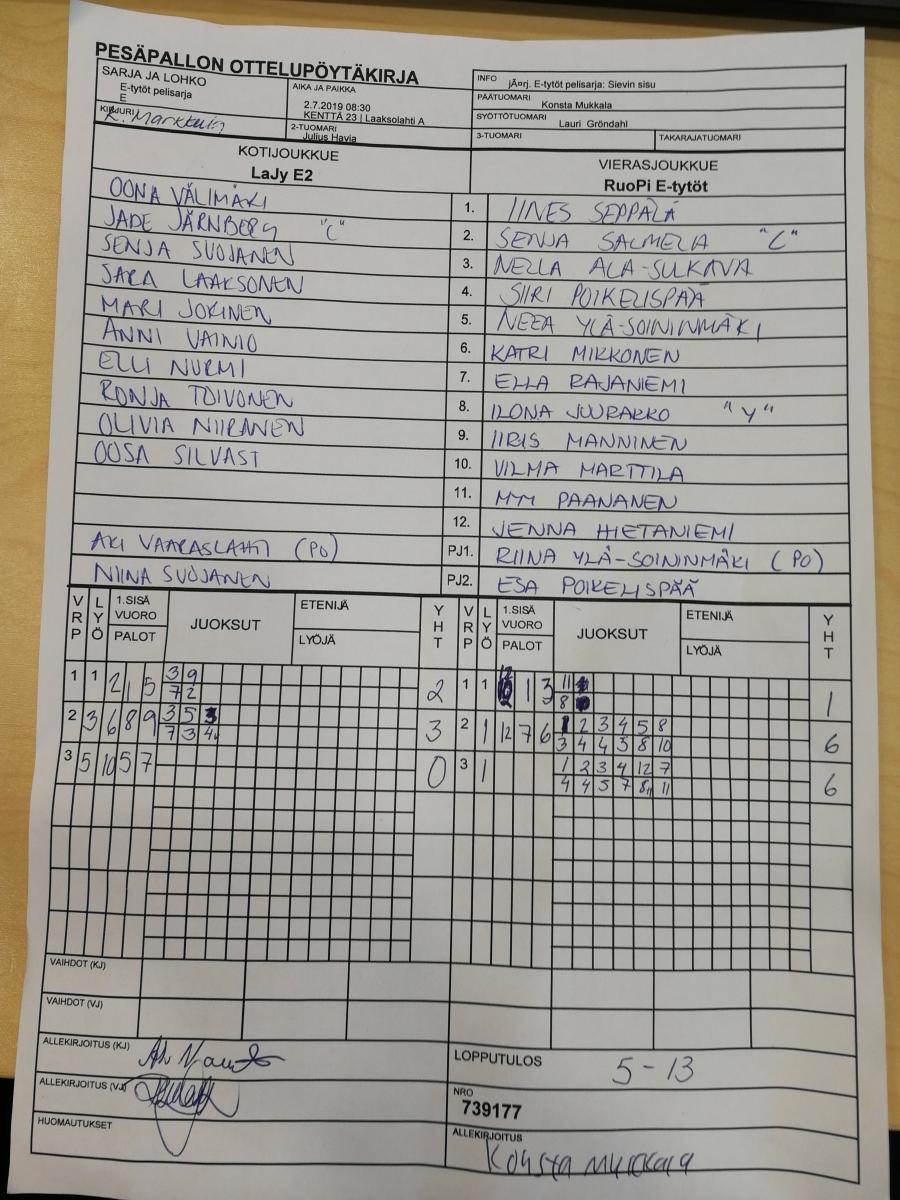 PESÄPALLON OTTELUPÖYTÄKIRJA
SARJA JA LOHKO
E-tytöt pelisarja
E
KIRJURI
K. Markkula
AIKA JA PAIKKA
2.7.2019 08:30
KENTTÄ 23 | Laaksolahti A
2-TUOMARI
Julius Havia
INFO jÃ¤rj. E-tytöt pelisarja: Sievin sisu
PÄÄTUOMARI Konsta Mukkala
SYÖTTÖTUOMARI Lauri Gröndahl
3-TUOMARI TAKARAJATUOMARI
KOTIJOUKKUE VIERASJOUKKUE
LaJy E2 RuoPi E-tytöt
OONA VÄLIMÄKI 1. IINES SEPPÄLÄ
JADE JÄRNBERG "C" 2. SENJA SALMELA "C"
SENJA SUOJANEN 3. NELLA ALA-SULKAVA
SARA LAAKSONEN 4. SIIRI POIKELISPÄÄ
MARI JOKINEN 5. NEEA YLÄ-SOININMÄKI
ANNI VAINIO 6. KATRI MIKKONEN
ELLI NURMI 7. ELLA RAJANIEMI
RONJA TOIVONEN 8. ILONA JUURAKKO "V"
OLIVIA NIIRANEN 9. IIRIS MANNINEN
OOSA SILVAST 10. VILMA MARTTILA
11. MYY PAANANEN
12. JENNA HIETANIEMI
AKI VAARASLAHTI (PO) PJ1. RIINA YLÄ-SOININMÄKI (PO)
NIINA SUOJANEN PJ2. ESA POIKELISPÄÄ
VRP LYÖ 1.SISÄ VUORO PALOT JUOKSUT ETENIJÄ LYÖJÄ YHT VRP LYÖ 1.SISÄ VUORO PALOT JUOKSUT ETENIJÄ LYÖJÄ YHT
1 1 2 1 5 3 9 2 1 1 1 3 11 1
7 2 8
2 3 6 8 9 3 5 3 3 2 1 12 7 6 1 2 3 4 5 8 6
7 3 4 3 4 4 5 8 10
3 5 10 5 7 0 3 1 1 2 3 4 12 7 6
4 4 5 7 8 11
VAIHDOT (KJ)
VAIHDOT (VJ)
ALLEKIRJOITUS (KJ)
ALLEKIRJOITUS (VJ)
HUOMAUTUKSET
LOPPUTULOS 5-13
NRO
739177
ALLEKIRJOITUS
Konsta Mukkala